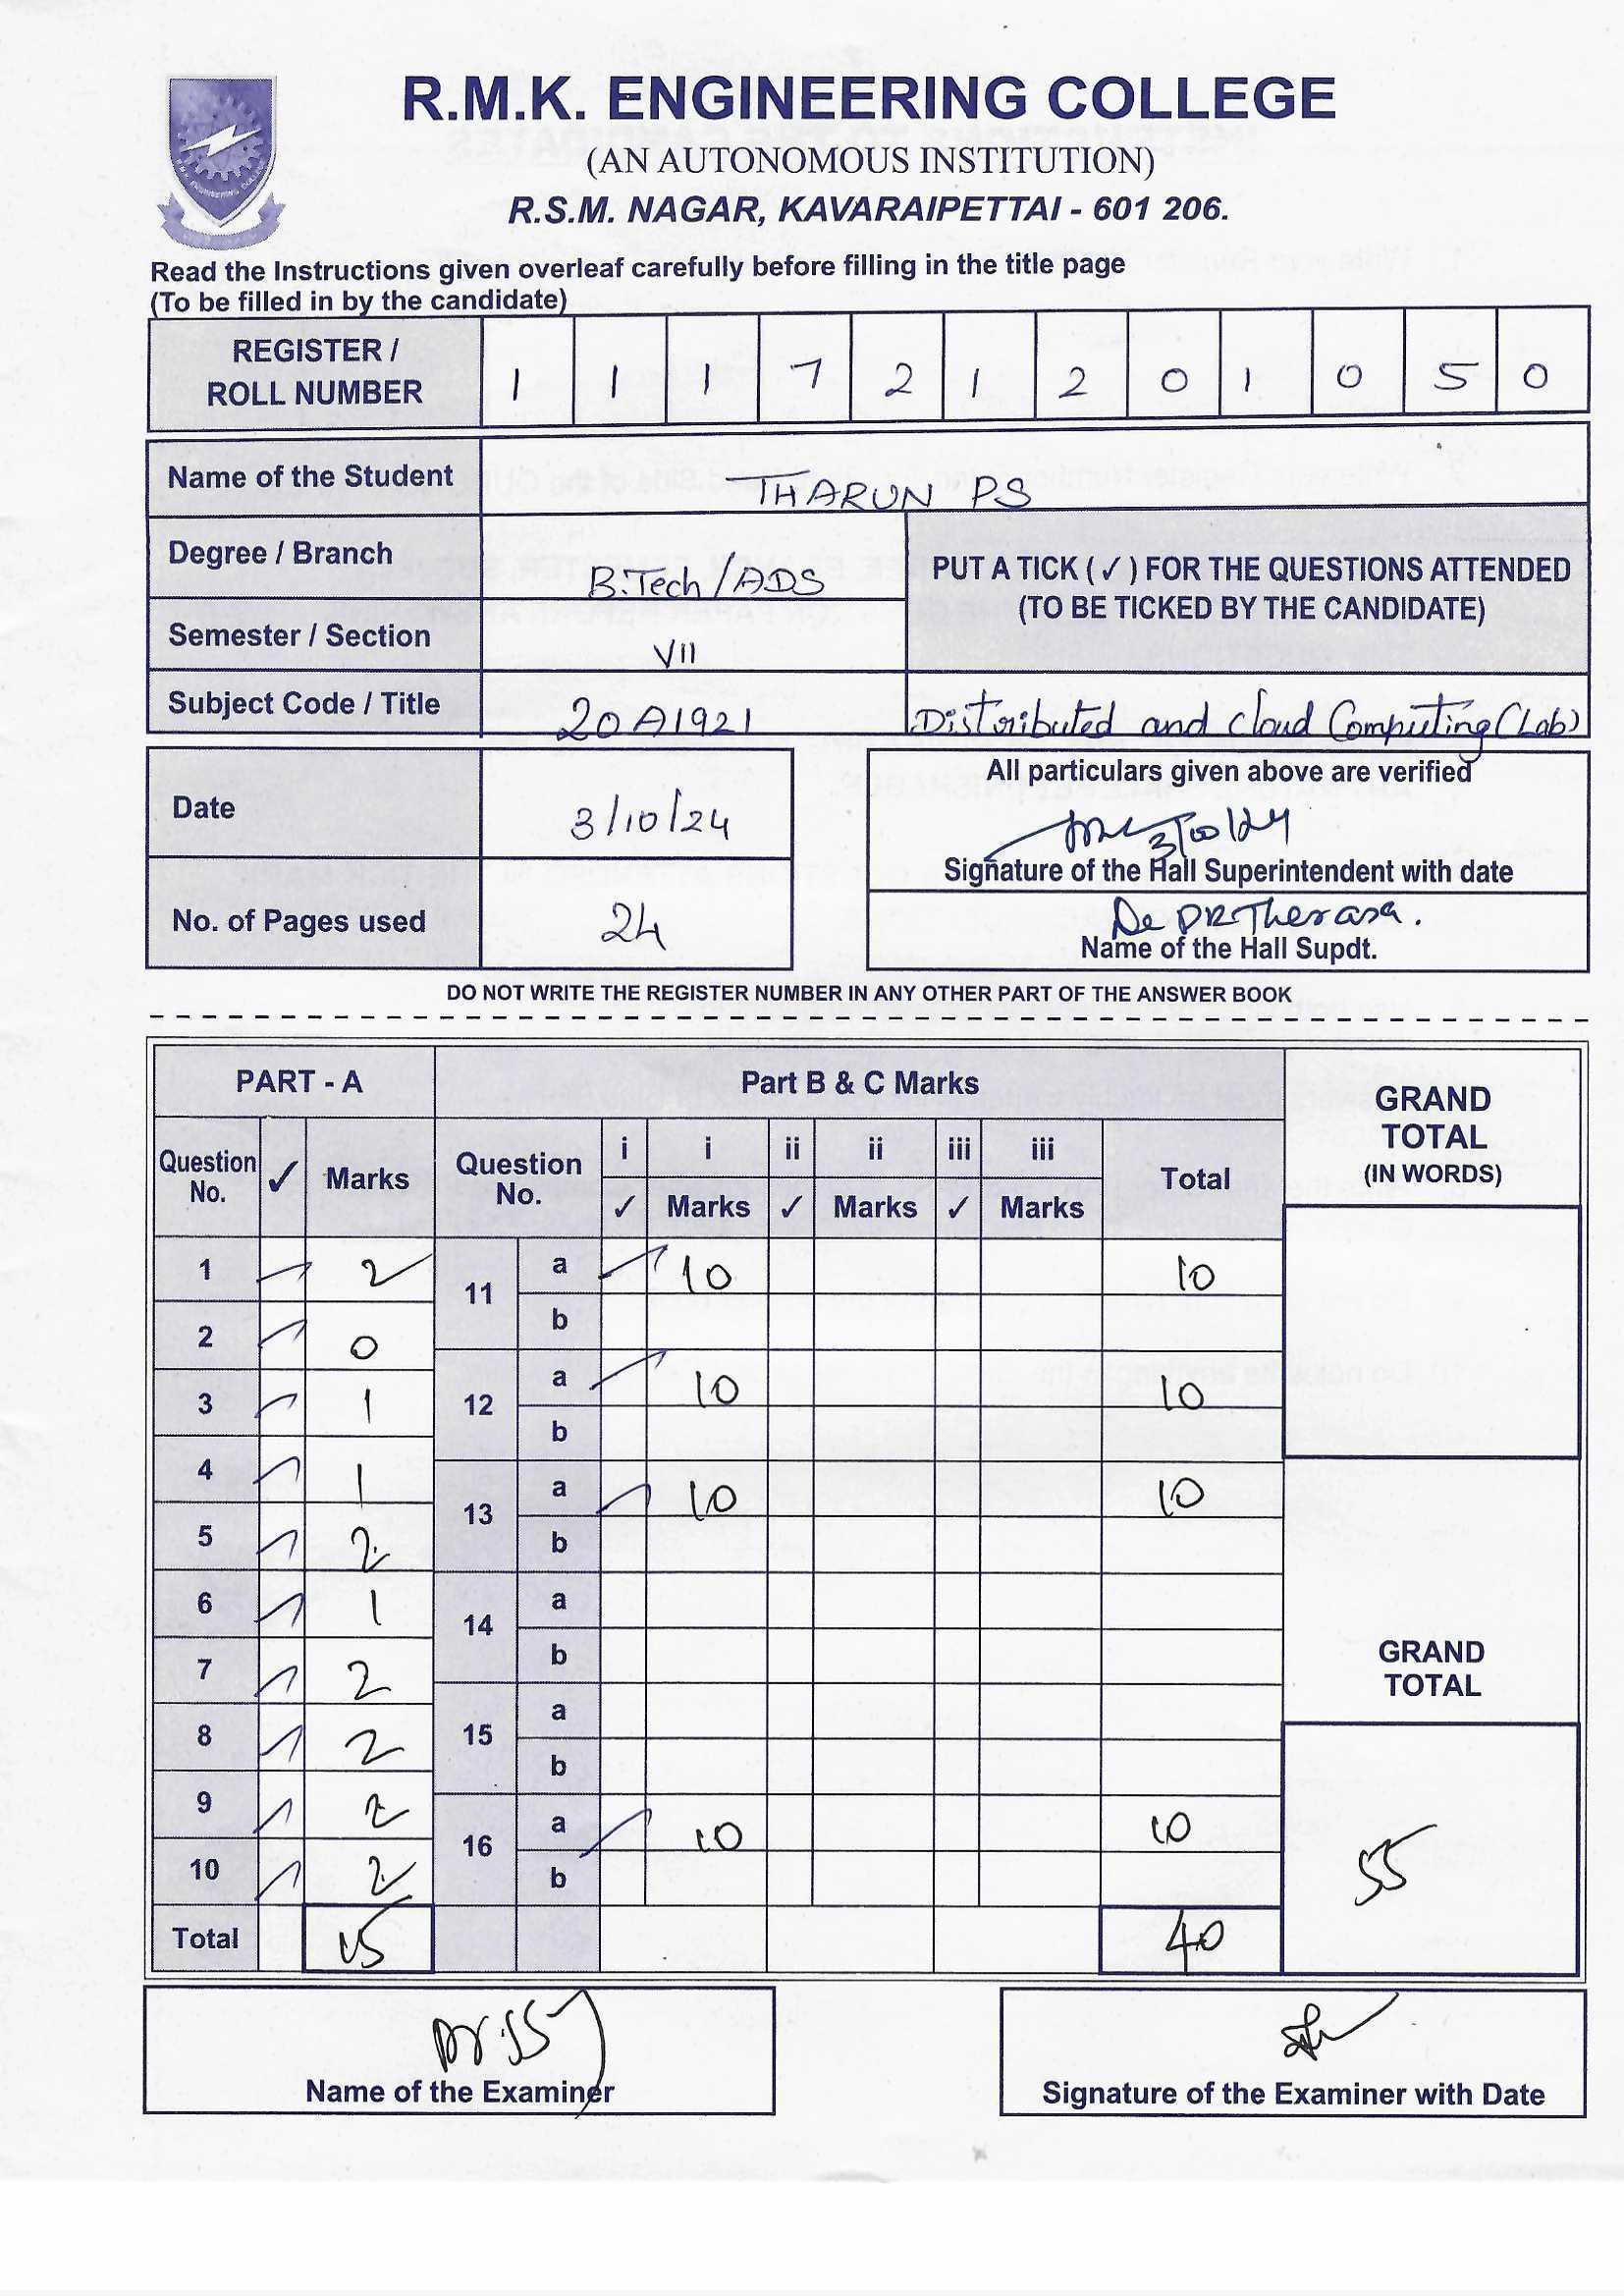 R.M.K. ENGINEERING COLLEGE
(AN AUTONOMOUS INSTITUTION)
R.S.M. NAGAR, KAVARAIPETTAI - 601 206.
Read the Instructions given overleaf carefully before filling in the title page
(To be filled in by the candidate)
REGISTER / ROLL NUMBER 1 1 1 7 2 1 2 0 1 0 5 0
Name of the Student THARUN PS
Degree / Branch B.Tech/ADS
PUT A TICK ( ✓ ) FOR THE QUESTIONS ATTENDED
(TO BE TICKED BY THE CANDIDATE)
Semester / Section VII
Subject Code / Title 20AI921 Distributed and cloud Computing (Lab)
Date 3/10/24
All particulars given above are verified
Signature of the Hall Superintendent with date
No. of Pages used 24
Name of the Hall Supdt.
DO NOT WRITE THE REGISTER NUMBER IN ANY OTHER PART OF THE ANSWER BOOK
PART - A Part B & C Marks GRAND TOTAL (IN WORDS)
Question No. ✓ Marks Question No. i i ii ii iii iii Total
✓ Marks ✓ Marks ✓ Marks
1 ✓ 2 11 a ✓ 10 10
b
2 ✓ 0
3 ✓ 1 12 a ✓ 10 10
b
4 ✓ 1 13 a ✓ 10 10
5 ✓ 2 b
6 ✓ 1 14 a
7 ✓ 2 b
GRAND TOTAL
8 ✓ 2 15 a
b
9 ✓ 2 16 a ✓ 10 10
10 ✓ 2 b
55
Total 15 40
Name of the Examiner
Signature of the Examiner with Date